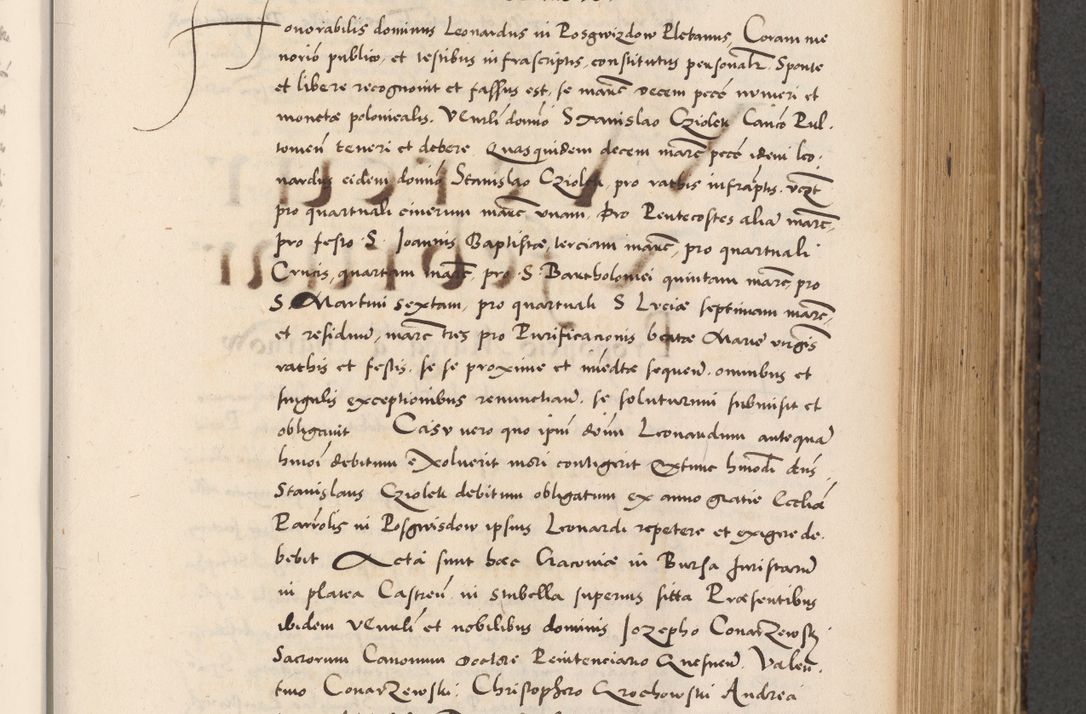 Honorabilis dominus Leonardus in Posgwizdow Plebanus, Coram me
notorio publico, et testibus infrascriptis, constitutus personalr. Sponte
et libere recognovit et fassus est, se marc decem pecc numeri et
monetæ polonicalis. Vnrli domio Stanislao Cziolek Canco Pul,
toneñ teneri et debere Quas quidem decem marc pecc idem leo,
nardus eidem domio Stanislao Cziolek, pro rathis infraptis. vczt
pro quartuali cinerum marc vnam, Pro Pentecostes alia marc,
pro festo S. Joannis Baptistæ, terciam marc, pro quartuali
Crucis, quartam marc, pro S. Bartholomei quintam marc, pro
S. Martini sextam, pro quartuali S Luciæ septimam marc,
et residuu, marc tres pro Purificationis beatæ Mariæ virgis
rathis et festis. se se proxime et imedtæ sequen. omnibus et
singulis exceptionibus renunctiau. se soluturum submisit et
obligauit Casu uero quo ipm doim Leonardum antequa
hmoi debitum exoluerit mori contigerit Extunc hmodi dns
Stanislaus Cziolek debitum obligatum ex anno gratie Eccliæ
Parrolis in Posgwisdow ipsius Leonardi repetere et exigere de,
bebit Acta sunt hæc Cracouiæ in Bursa Juristaru
in platea Castreñ. in stubella superius sitta Præsentibus
ibidem Vnrli et nobilibus dominis Jozepho Conarzewski
Sacrorum Canonum doctore Penitenciario Gnesnen. Valen,
tino Conarzewski, Christophero Grochowski Andrea